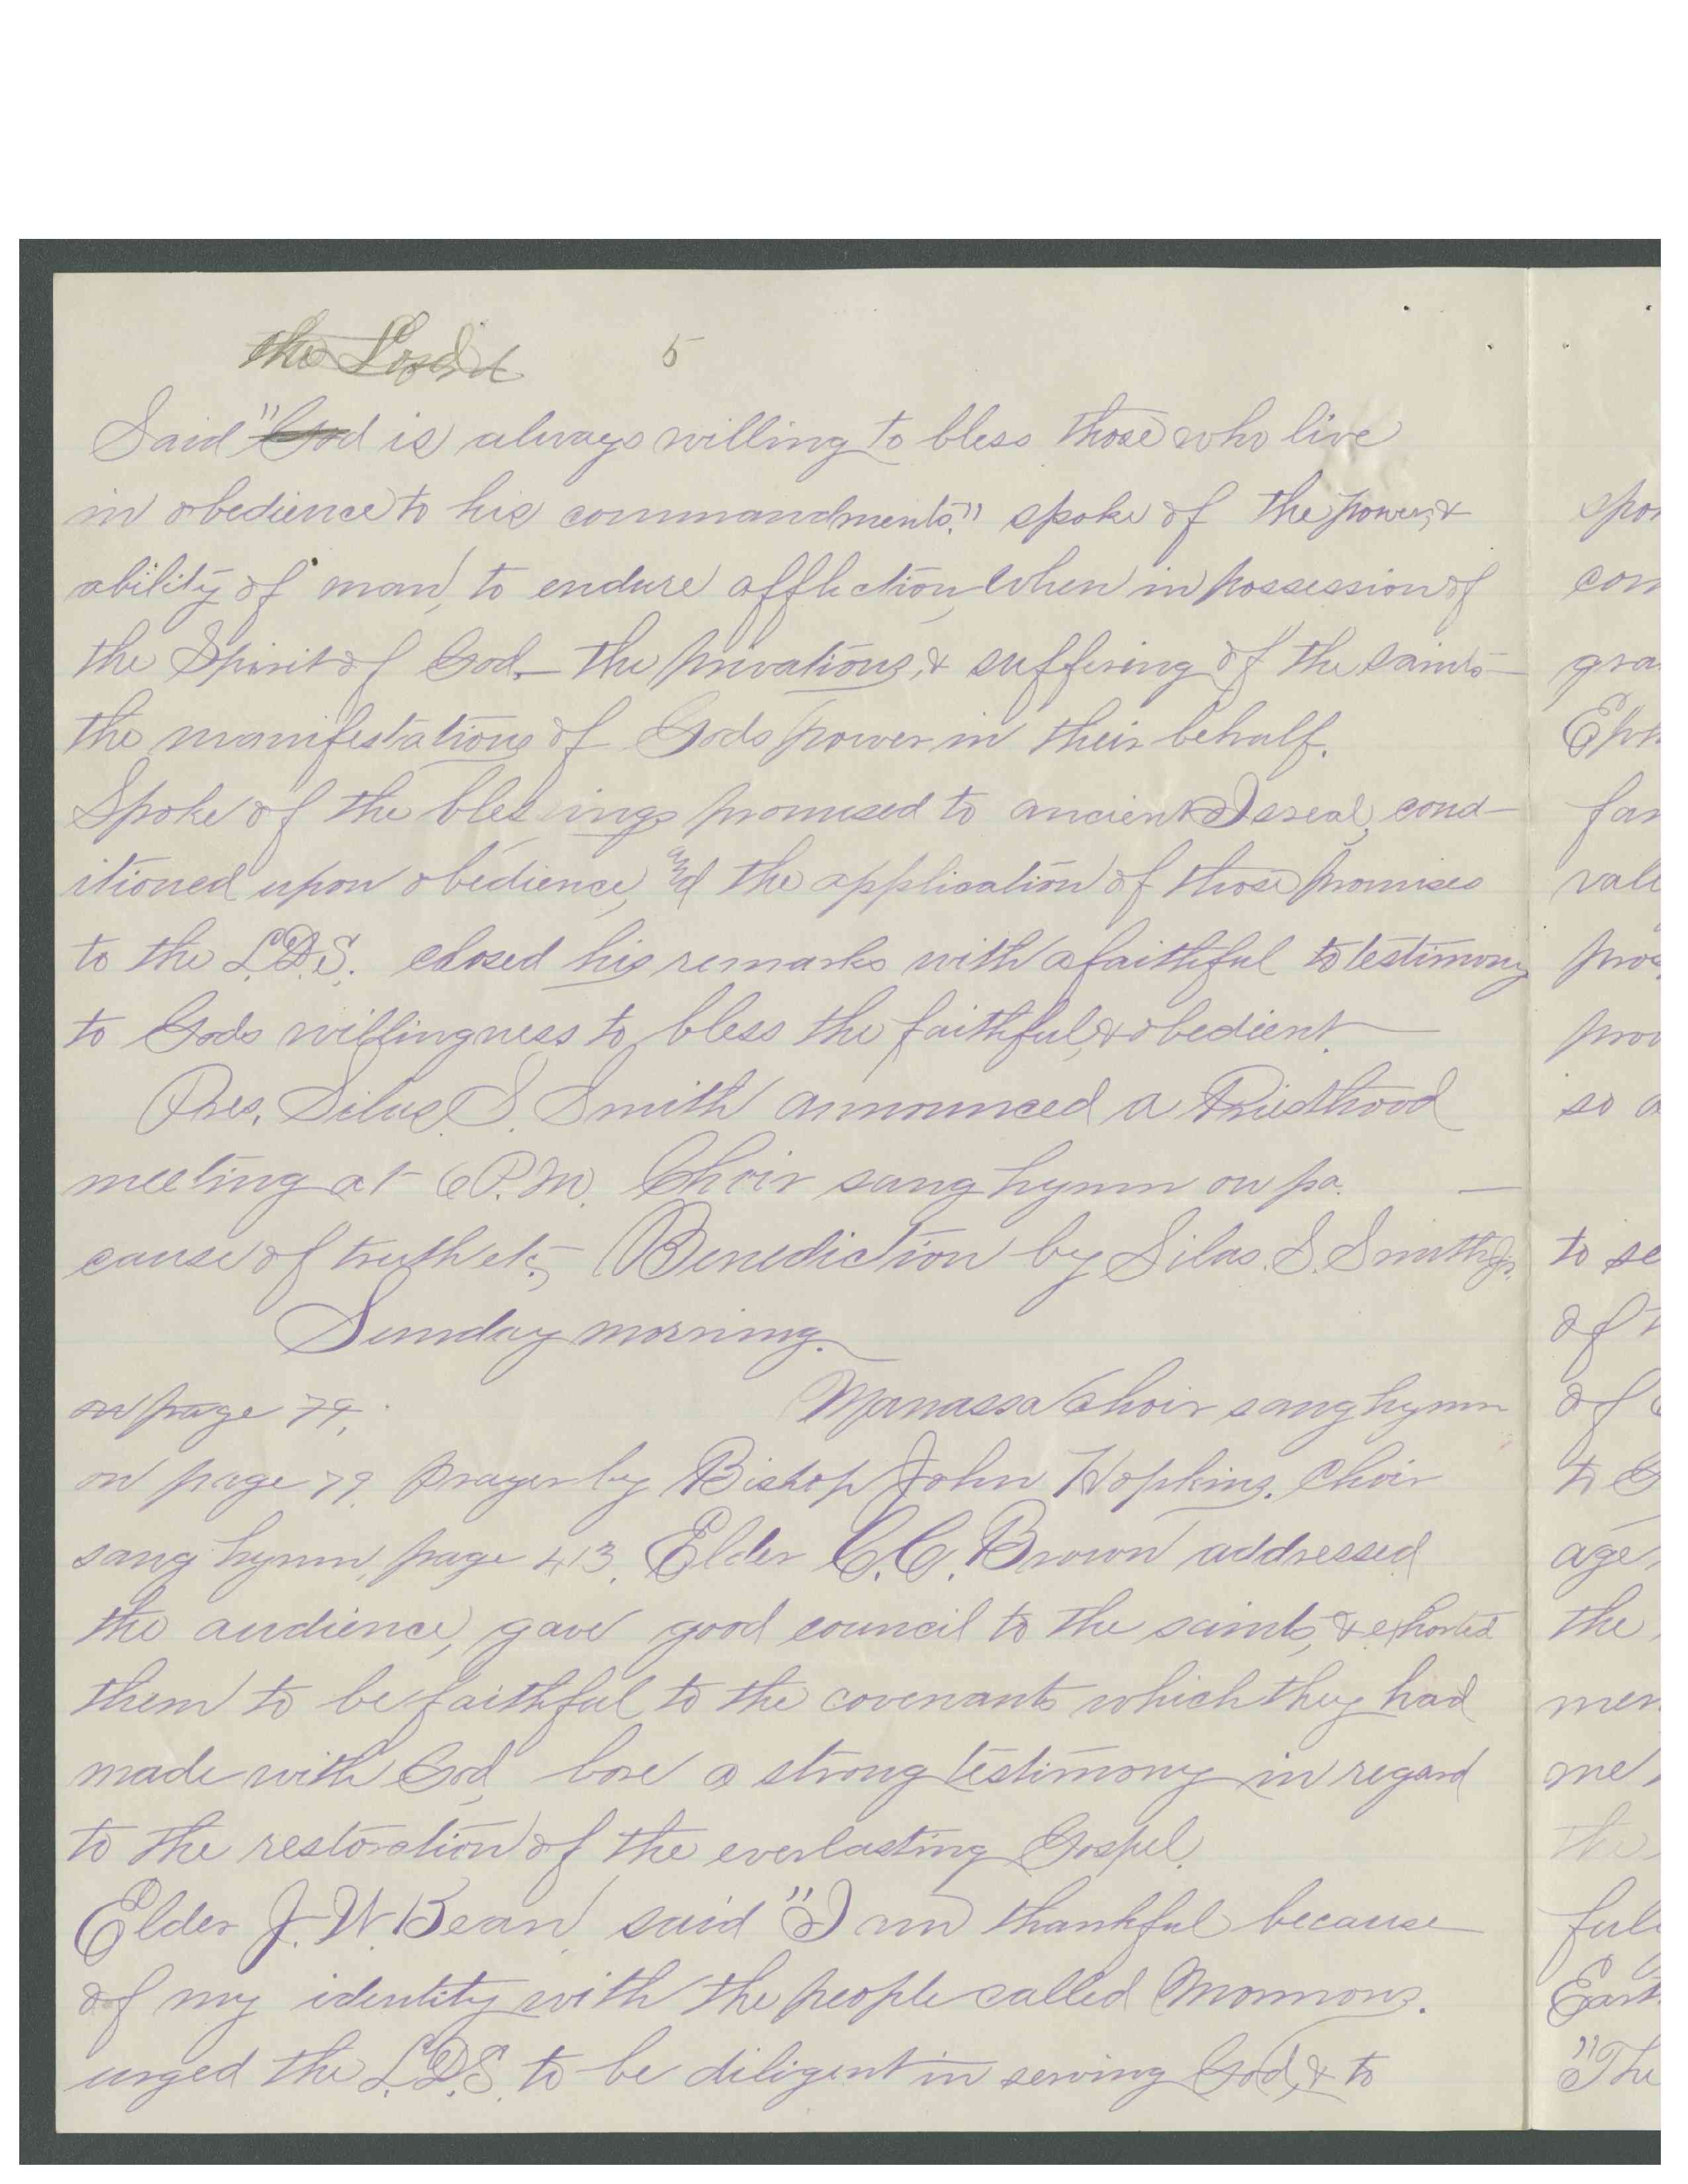 the Lord 5
Said "God is always willing to bless those who live
in obedience to his commandments." spoke of the power, &
ability of man, to endure affliction, when in possession of
the Spirit of God,— the privations, & suffering of the saints—
the manifestations of Gods power in their behalf.
Spoke of the blessings promised to ancient Isreal, cond-
itioned upon obedience, and the application of those promises
to the L.D.S. closed his remarks with a faithful to testimony
to Gods willingness to bless the faithful, & obedient.
Pres. Silas. S. Smith announced a Priesthood
meeting at 6 P.M. Choir sang hymn on pa. —
cause of truth etc, Benediction by Silas. S. Smith Jr.
Sunday morning.
on page 79. Manassa Choir sang hymn
on page 79. prayer by Bishop John Hopkins. Choir
sang hymn, page 413. Elder C.C. Brown addressed
the audience, gave good council to the saints, & exhorted
them to be faithful to the covenants which they had
made with God, bore a strong testimony in regard
to the restoration of the everlasting Gospel.
Elder J. W. Bean, said "I am thankful because
of my identity with the people called Mormons.
urged the L.D.S. to be diligent in serving God, & to